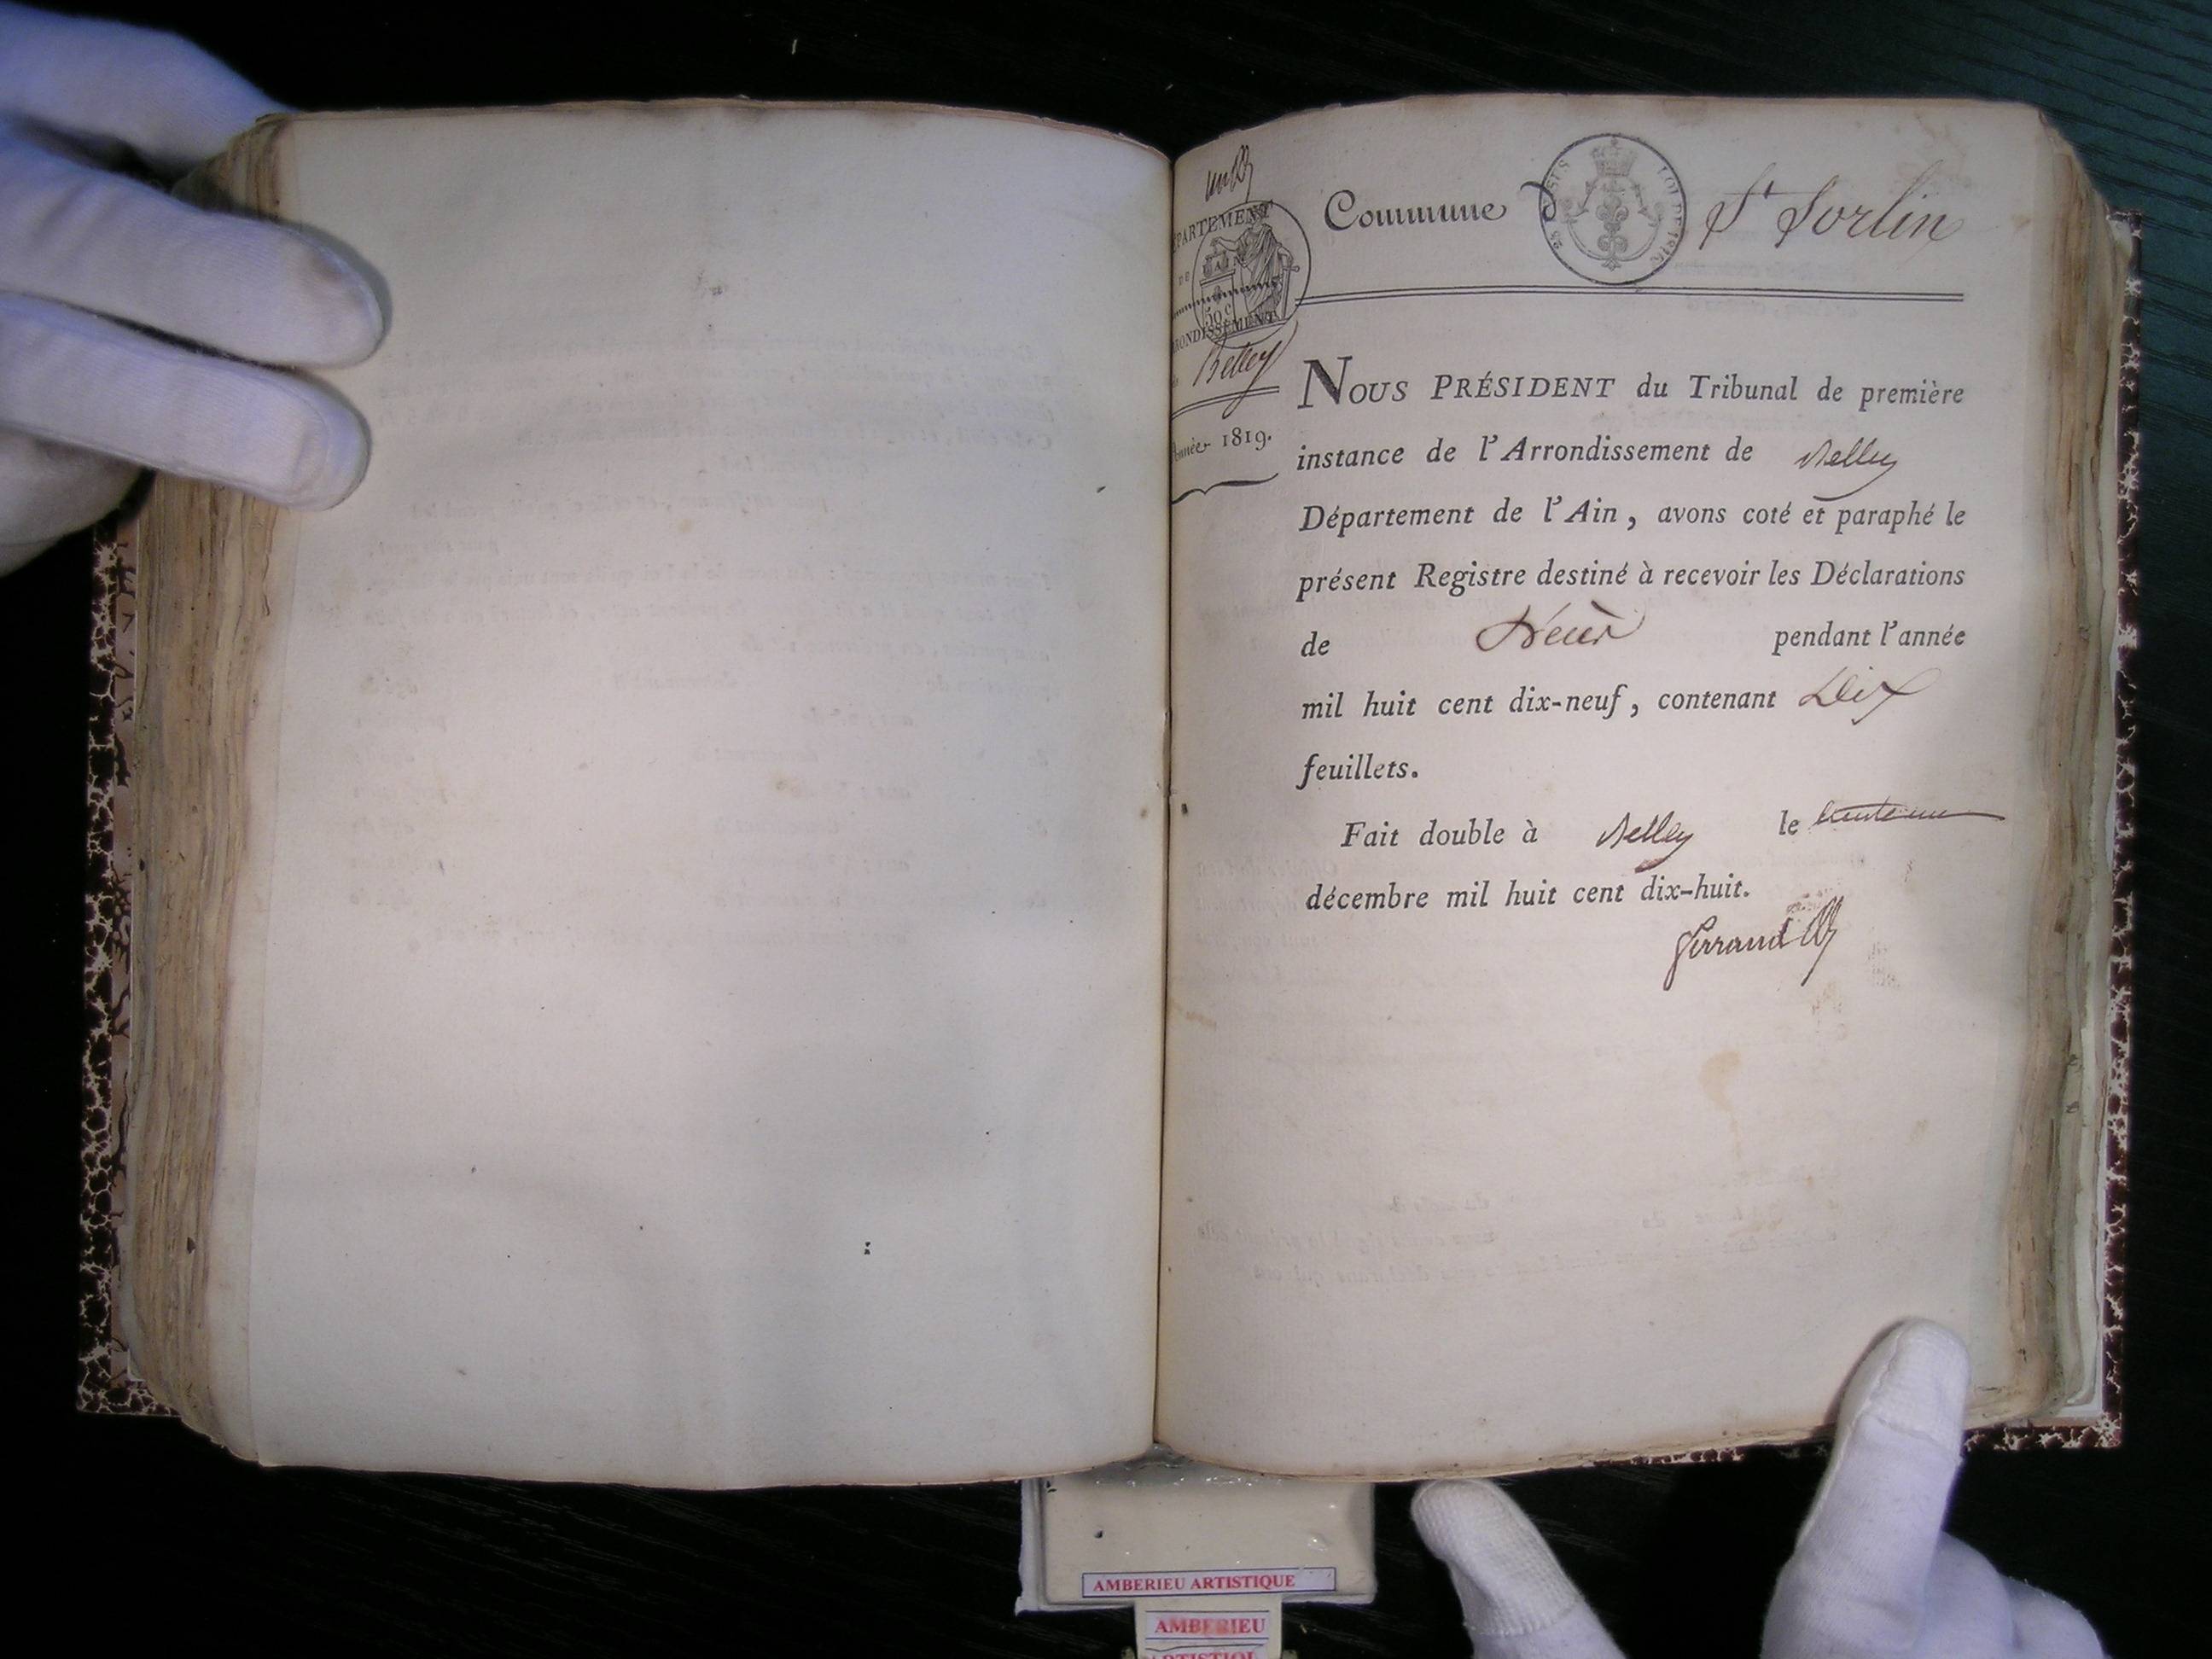 un
DÉPARTEMENT
DE
L'AIN
50 c
ARRONDISSEMENT
de Belley
Année 1819.
Commune d
St Sorlin
NOUS PRÉSIDENT du Tribunal de première
instance de l'Arrondissement de Belley
Département de l'Ain, avons coté et paraphé le
présent Registre destiné à recevoir les Déclarations
de Décès pendant l'année
mil huit cent dix-neuf, contenant Dix
feuillets.
Fait double à Belley le trente un
décembre mil huit cent dix-huit.
Ferrand
AMBERIEU ARTISTIQUE
AMBERIEU
ARTISTIQUE